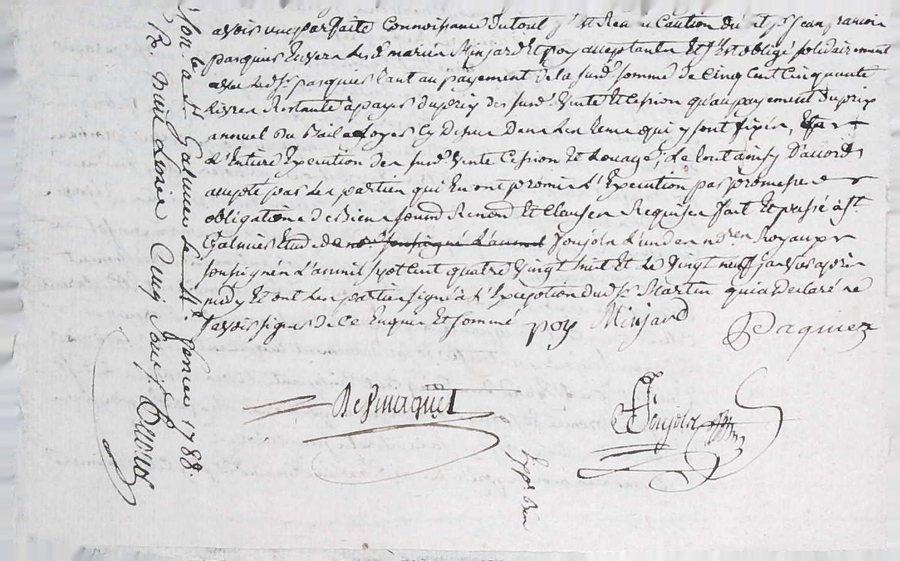 avoir une parfaite Connoissance Du tout, s'est Rendu Caution du d. Sr. Jean
parquier Envers les de. mariés Minjard Et poy acceptants Et s'est obligé solidairement
avec led. Sr. parquier tant au payement de la susd. somme de Cinq Cent Cinquante
Livres Restante à payer du prix des susd. Vente Et Cession qu'au payement Du prix
annuel du Bail a Loyer Cy Dessus Dans les termes qui y sont fixés, Et a
L'Entiere Execution des susd. Vente Cession Et Louage, Le tout ainsy D'accord
accepté par les parties qui En ont promis L'Execution par promesse
obligation de Biens soumd. Renond. Et Clauses Requises fait Et passé à St.
Galmier Etude de Ponjolx L'un des nores. Royaux
soussignés L'an mil sept cent quatre vingt huit Et le vingt neuf janvier après
midy Et ont les parties signé à L'Exception dud. Sr. Martin qui a declaré ne
savoir signer de ce Enquis Et sommé
poy Minjard
Paquier
Desmaquet
Ponjolx
Expé. Bin
Con. lé a St. Galmier le janvier 1788.
R. huit Livres Cinq sous